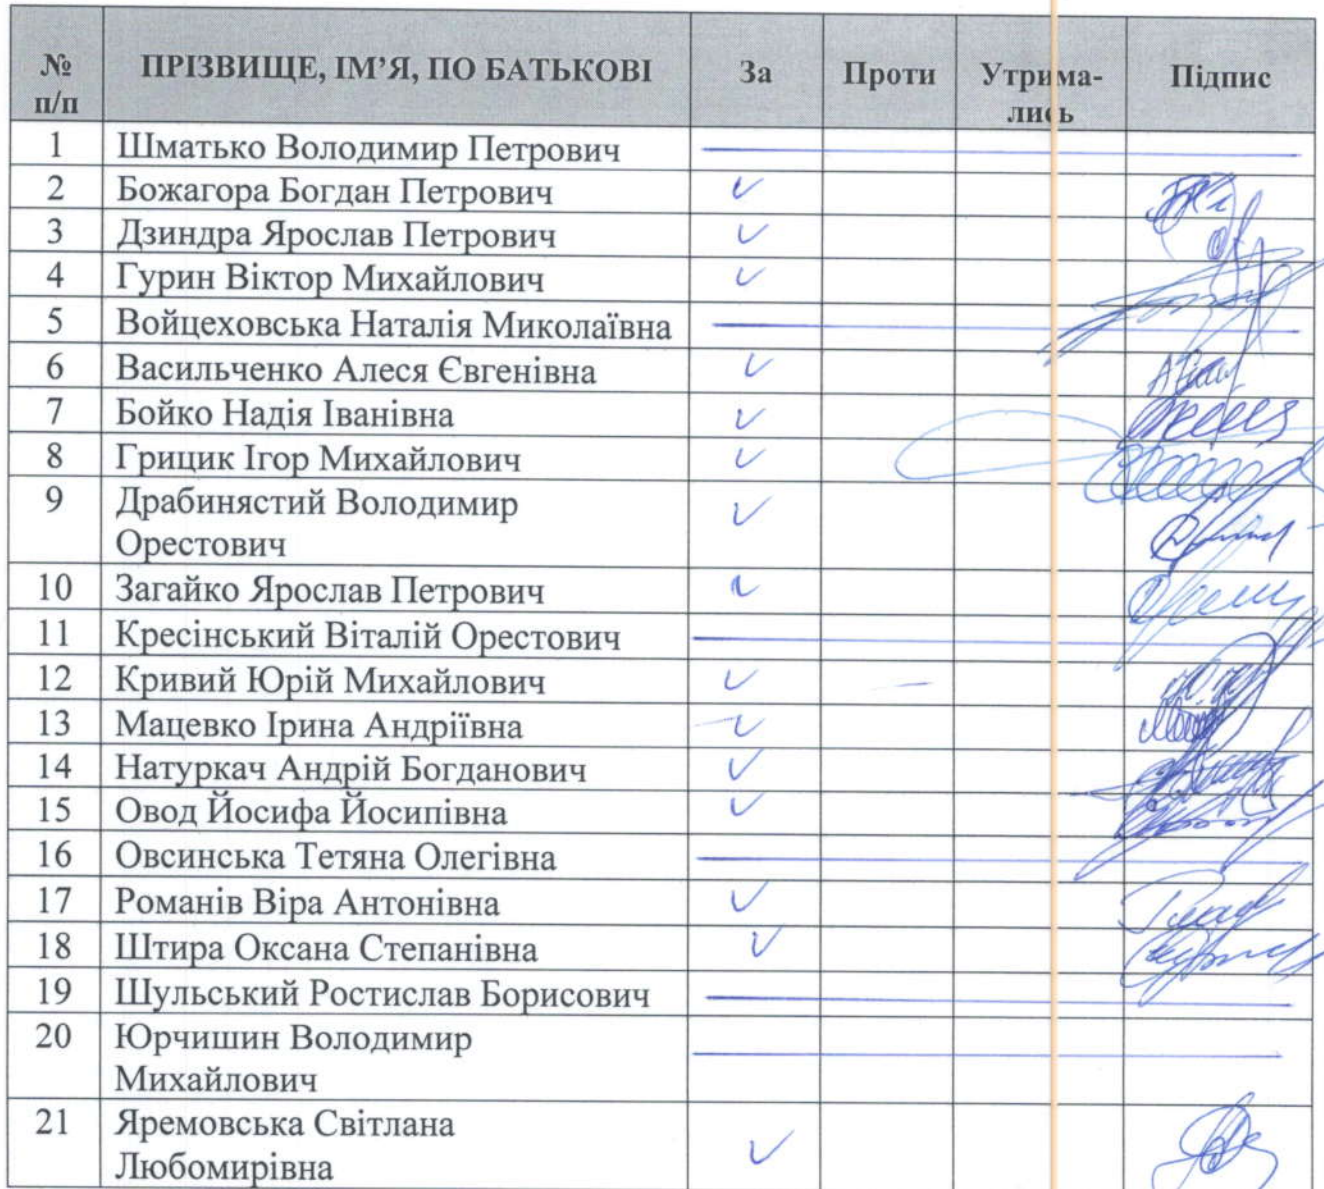 № п/п ПРІЗВИЩЕ, ІМ’Я, ПО БАТЬКОВІ За Проти Утрима-лись Підпис
1 Шматько Володимир Петрович
2 Божагора Богдан Петрович ✓
3 Дзиндра Ярослав Петрович ✓
4 Гурин Віктор Михайлович ✓
5 Войцеховська Наталія Миколаївна
6 Васильченко Алеся Євгенівна ✓
7 Бойко Надія Іванівна ✓
8 Грицик Ігор Михайлович ✓
9 Драбинястий Володимир ✓
Орестович
10 Загайко Ярослав Петрович ✓
11 Кресінський Віталій Орестович
12 Кривий Юрій Михайлович ✓
13 Мацевко Ірина Андріївна ✓
14 Натуркач Андрій Богданович ✓
15 Овод Йосифа Йосипівна ✓
16 Овсинська Тетяна Олегівна
17 Романів Віра Антонівна ✓
18 Штира Оксана Степанівна ✓
19 Шульський Ростислав Борисович
20 Юрчишин Володимир
Михайлович
21 Яремовська Світлана
Любомирівна ✓